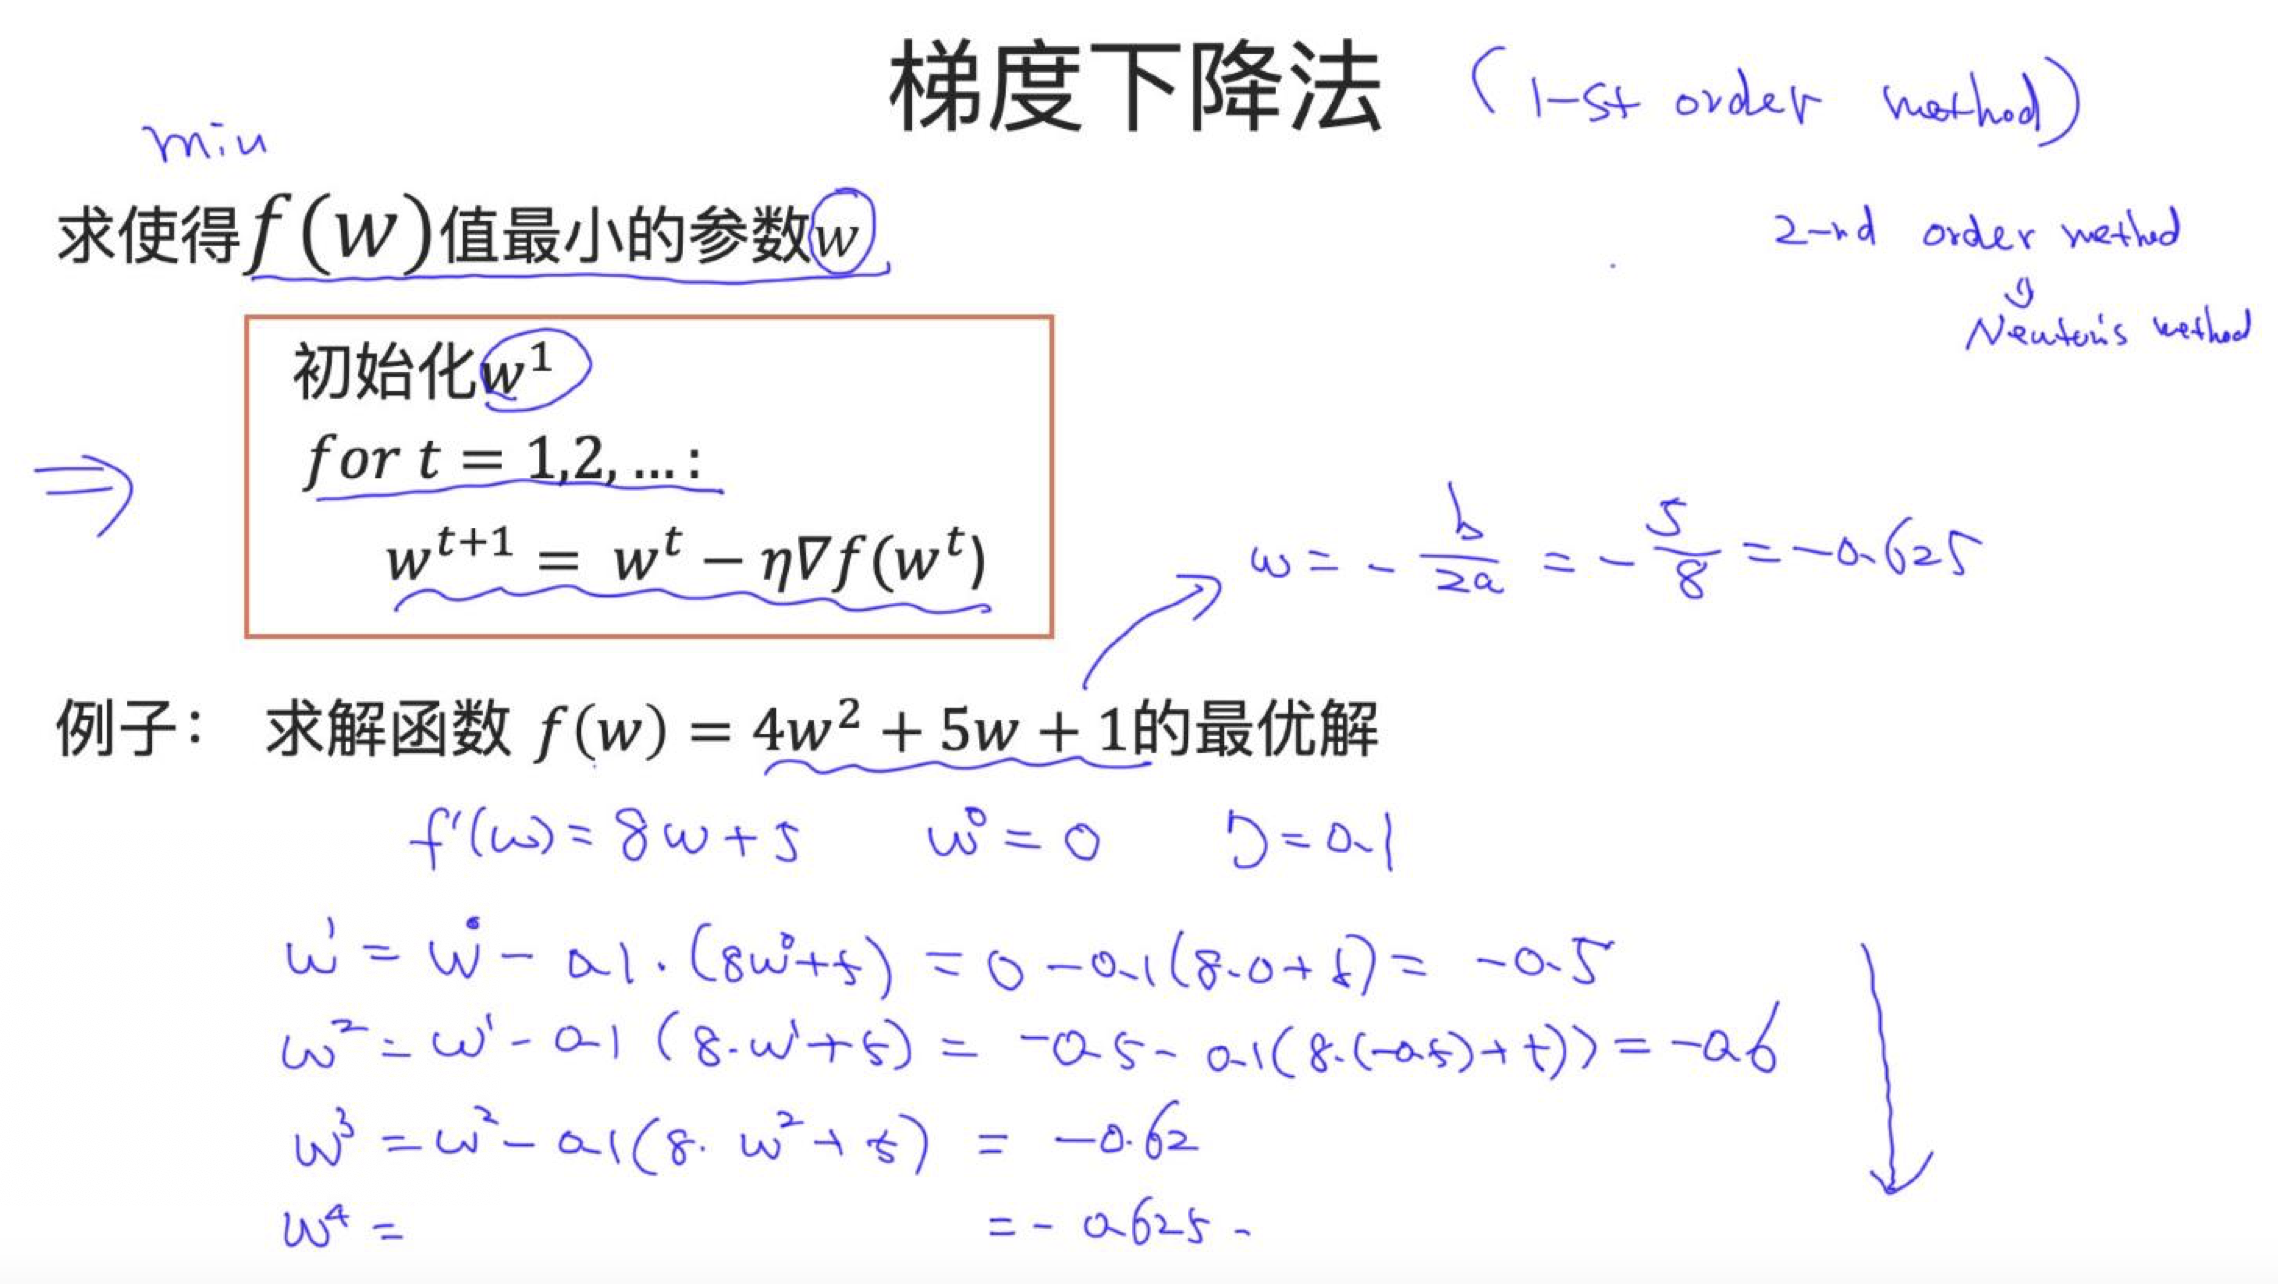 梯度下降法 (1-st order method)
min
求使得f(w)值最小的参数w
2-nd order method
⇓
Newton's method
初始化w¹
for t = 1,2, … :
⇒
wᵗ⁺¹ = wᵗ − η∇f(wᵗ)
w = - b/2a = - 5/8 = -0.625
例子： 求解函数 f(w) = 4w² + 5w + 1的最优解
f'(w) = 8w + 5 w⁰ = 0 η = 0.1
w¹ = w⁰ - 0.1 · (8w⁰+5) = 0 - 0.1(8·0+5) = -0.5
w² = w¹ - 0.1 (8·w¹+5) = -0.5 - 0.1(8·(-0.5)+5)) = -0.6
w³ = w² - 0.1(8· w²+5) = -0.62
w⁴ = = - 0.625 -